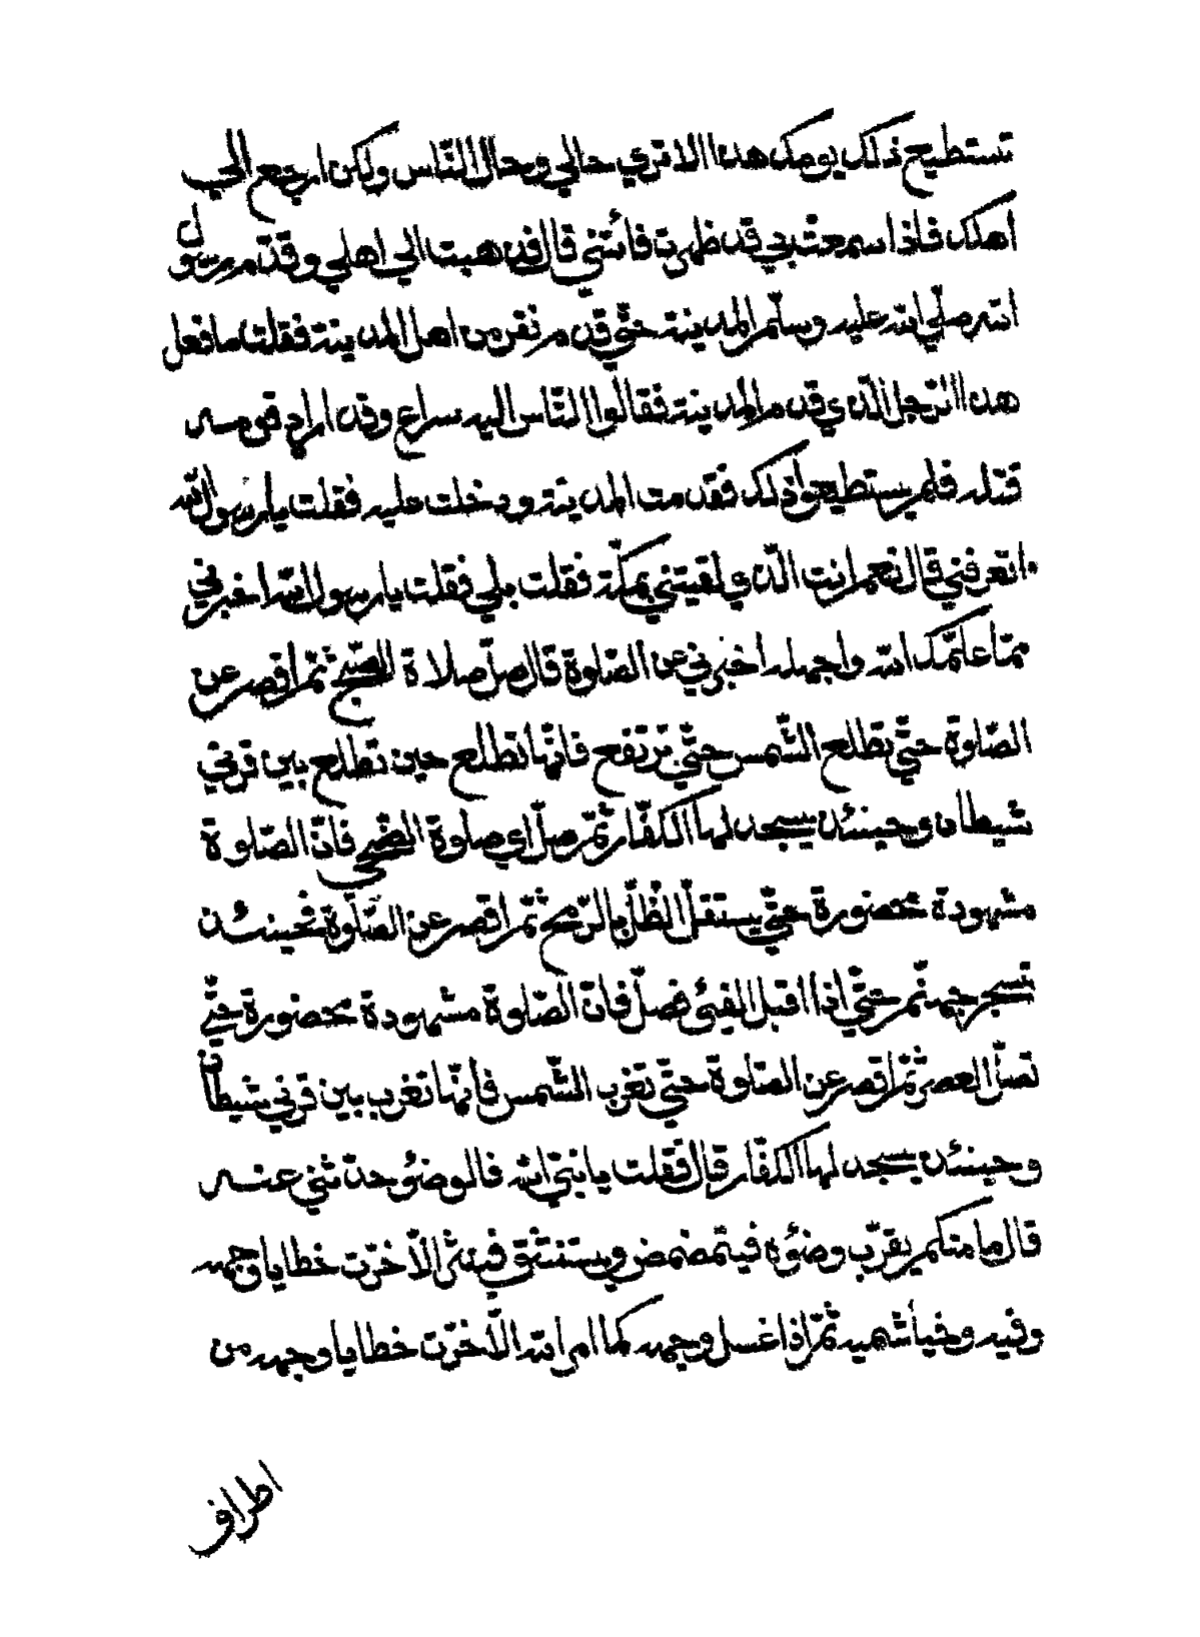 تستطيع ذلك يومك هذا الا ترى حالي وحال النّاس ولكن ارجع الى
اهلك فاذا سمعت بي قد ظهرت فائتني قال فذهبت الى اهلي وقدّم رسول
الله صلّى الله عليه وسلّم المدينة حتّى قدّم نفر من اهل المدينة فقلت ما فعل
هذا الرّجل الّذي قدم المدينة فقالوا النّاس اليه سراع وقد اراد قومه
قتله فلم يستطيعوا ذلك فقدمت المدينة ودخلت عليه فقلت يا رسول الله
اتعرفني قال نعم انت الّذي لقيتني بمكّة فقلت بلى فقلت يا رسول الله اخبرني
ممّا علمّك الله واجهله اخبرني عن الصّلوة قال صلّ صلاة الصّبح ثمّ اقصر عن
الصّلوة حتّى تطلع الشّمس حتّى ترتفع فانّها تطلع حين تطلع بين قرني
شيطان وحينئذ يسجد لها الكفّار ثمّ صلّ اي صلوة الضّحى فانّ الصّلوة
مشهودة محضورة حتّى يستقلّ الظّلّ بالرّمح ثمّ اقصر عن الصّلوة فحينئذ
تسجر جهنّم حتّى اذا اقبل الفئ فصلّ فانّ الصّلوة مشهودة محضورة حتّى
تصلّ العصر ثمّ اقصر عن الصّلوة حتّى تغرب الشّمس فانّها تغرب بين قرني شيطان
وحينئذ يسجد لها الكفّار قال فقلت يا نبيّ الله فالوضوء حدّثني عنه
قال ما منكم يقرّب وضوءه فيتمضمض ويستنشق فينثر الّا خرّت خطايا وجهه
وفيه وخياشيمه ثمّ اذا غسل وجهه كما امر الله الّا خرّت خطايا وجهه من
اطراف